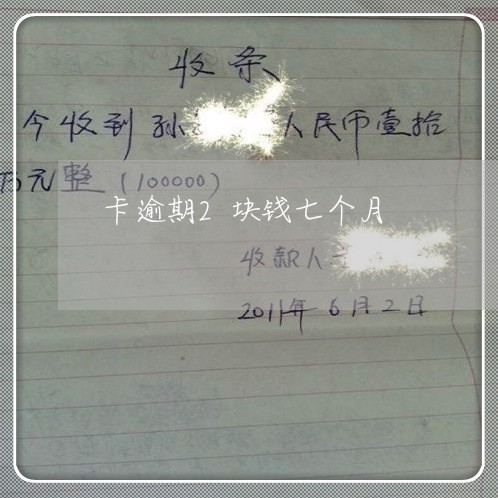 收条
今收到孙 人民币壹拾
万元整（100000）
卡逾期2 块钱七个月
收款人
2011年6月2日